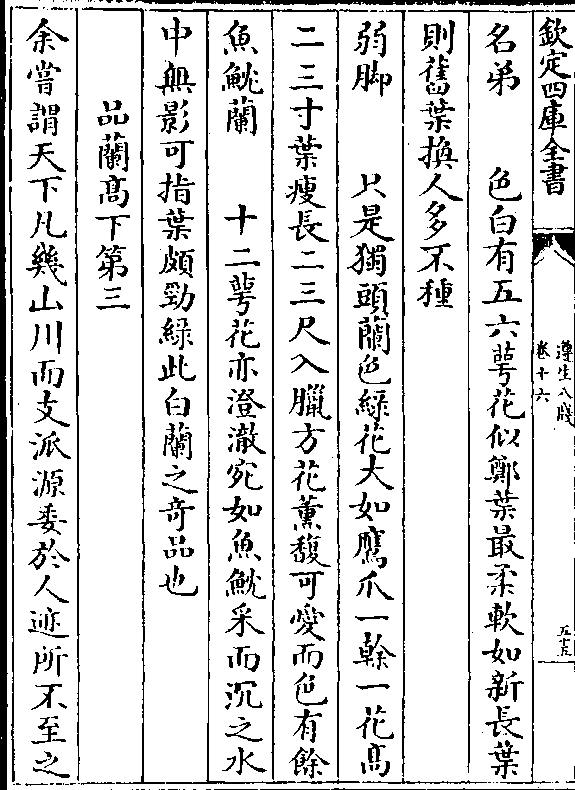 欽定四庫全書
遵生八牋
卷十六
名弟　色白有五六萼花似鄭葉最柔軟如新長葉
則舊葉換人多不種
弱脚　只是獨頭蘭色綠花大如鷹爪一榦一花高
二三寸葉瘦長二三尺入臘方花薰馥可愛而色有餘
魚魫蘭　十二萼花亦澄澈宛如魚魫采而沉之水
中無影可指葉頗勁綠此白蘭之奇品也
品蘭高下第三
余嘗謂天下凡幾山川而支派源委於人迹所不至之